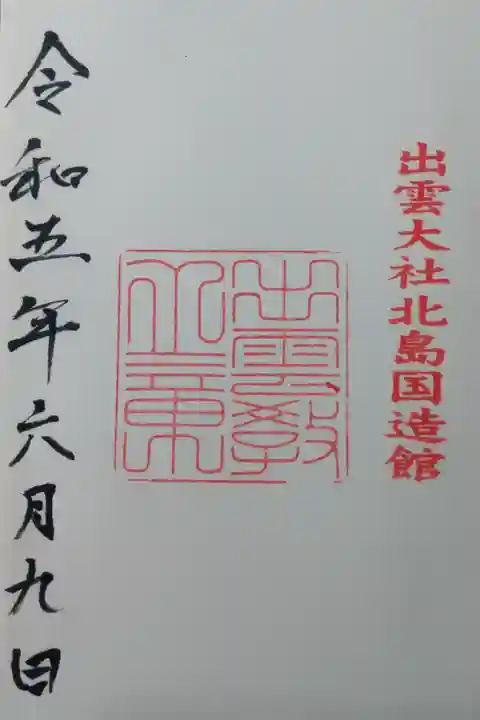 出雲大社北島国造館
出雲教
之章
令和五年六月九日